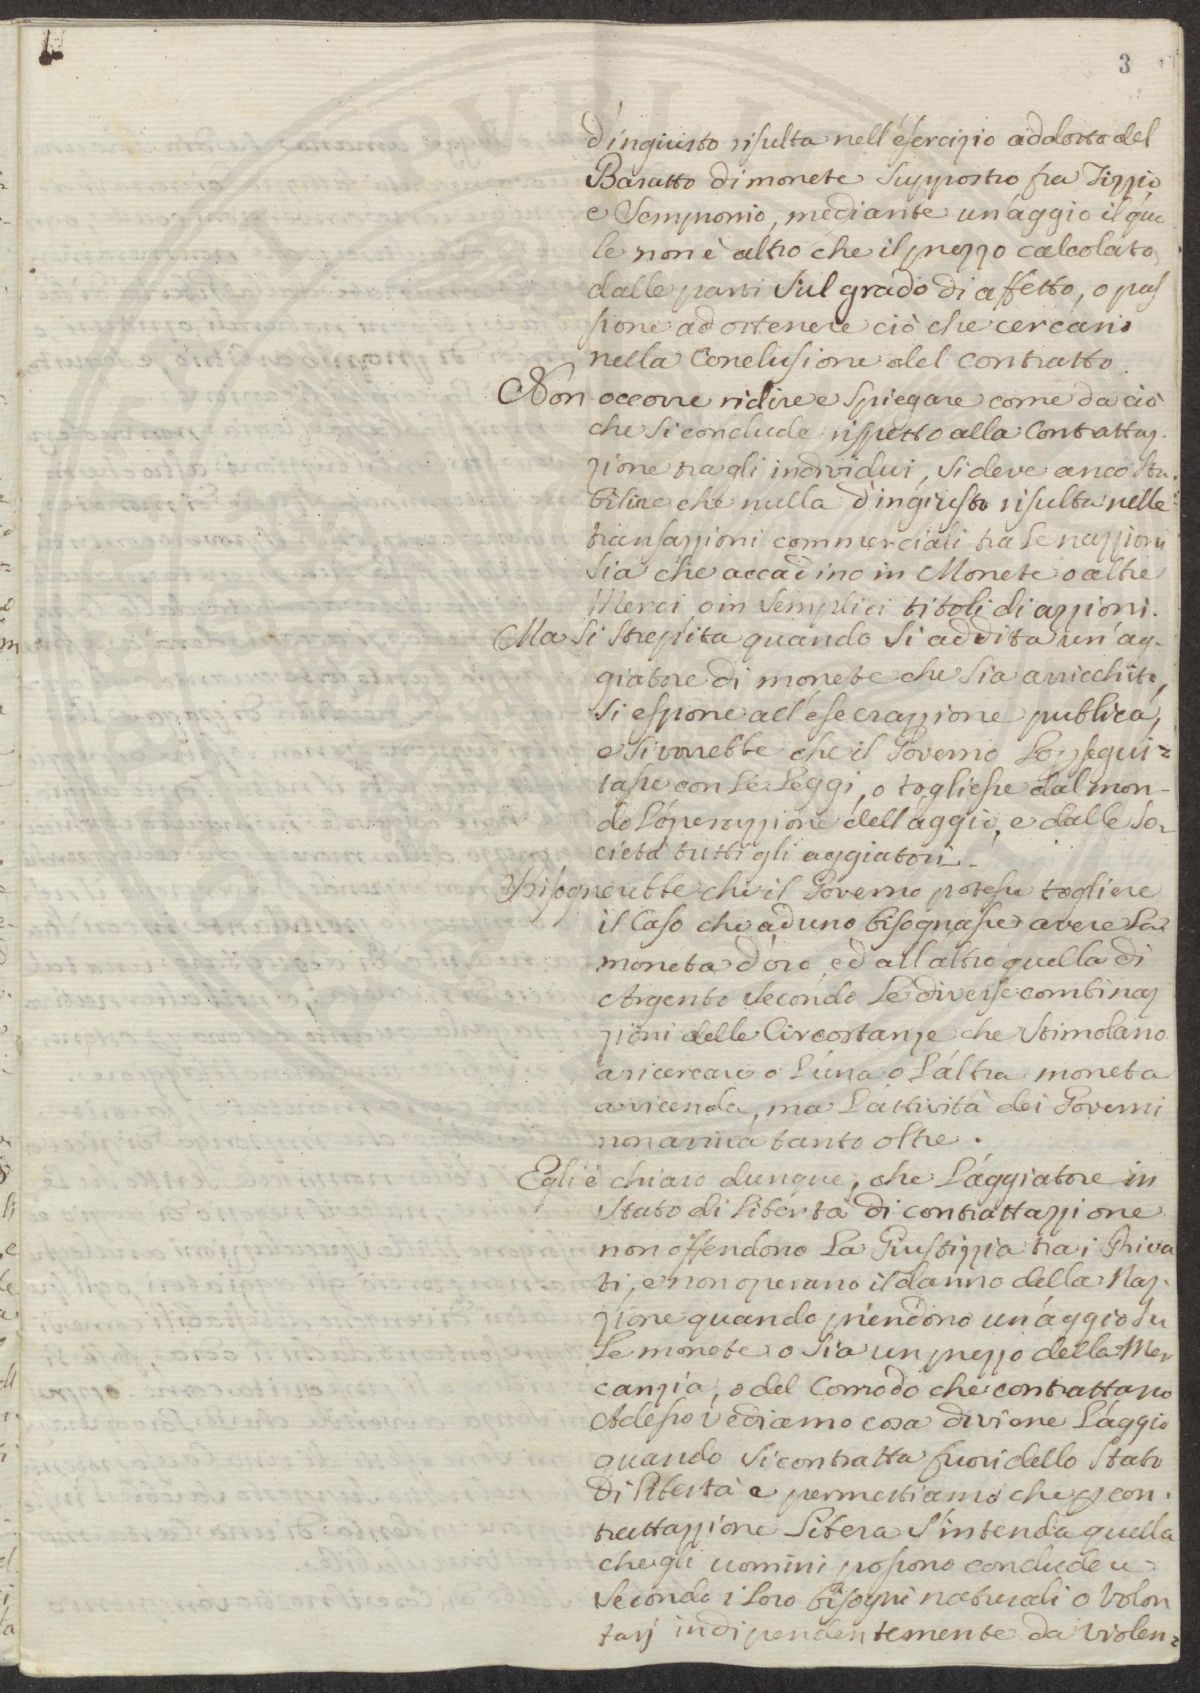 3
d'ingiusto risulta nell'esercizio addotto del
Baratto di monete supposto fra Tizzio,
e Sempronio, mediante un'aggio il qua
le non è altro che il prezzo calcolato
dalle parti sul grado di affetto, o pas
sione ad ottenere ciò che cercano
nella Conclusione del contratto.
Non occorre ridire e spiegare come da ciò
che si conclude rispetto alla Contrattaz-
zione tra gli individui, si deve anco sta-
bilire che nulla d'ingiusto risulta nelle
transazzioni commerciali tra le nazzioni
sia che accadino in Monete o altre
Merci o in semplici titoli di azzioni.
Ma si strepita quando si addita un'ag-
giatore di monete che sia arricchito,
si espone all'esecrazzione publica,
e si vorrebbe che il Governo lo persegui=
tasse con le Leggi, o togliesse dal mon-
do l'operazzione dell'aggio, e dalle So-
cietà tutti gli aggiatori.
Bisognerebbe che il Governo potesse togliere
il Caso che ad uno bisognasse avere la
moneta d'oro ed all'altro quella di
Argento secondo le diverse combinaz
zioni delle Circostanze che stimolano
a ricercare o l'una o l'altra moneta
a vicenda, ma l'attività dei Governi
non arriva tanto oltre.
Egli è chiaro dunque, che l'aggiatore in
stato di libertà di contrattazzione
non offendono la Giustizzia tra i Priva
ti, e non operano il danno della Naz-
zione quando prendono un'aggio su
le monete o sia un prezzo della Mer
canzia, o del Comodo che contrattano
Adesso vediamo cosa diviene l'aggio
quando si contratta fuori dello stato
di libertà e permettiamo che per con-
trattazzione libera s'intenda quella
che gli uomini possono concludere
secondo i loro bisogni naturali o volon
tarj indipendentemente da violen=